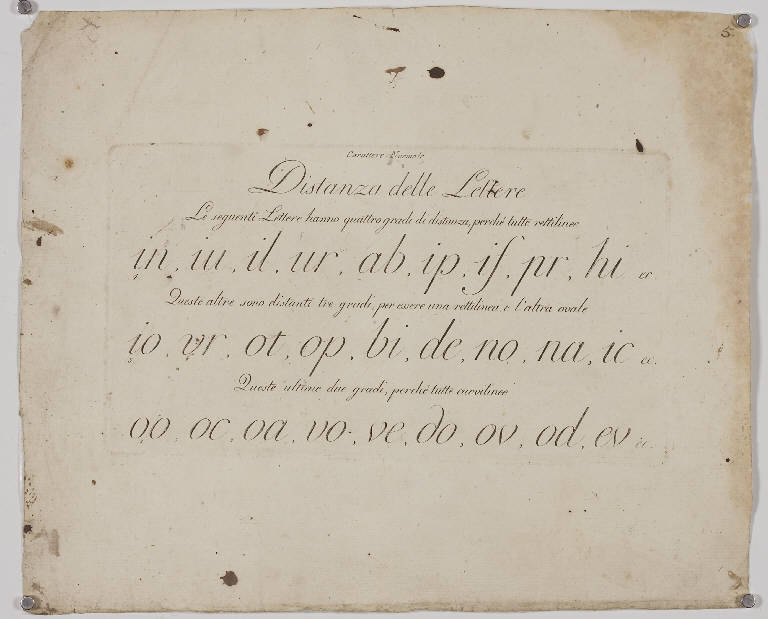 5.
Carattere Normale
Distanza delle Lettere
Le seguenti Lettere hanno quattro gradi di distanza, perché tutte rettilinee
in, iu, il, ur, ab, ip, iſ, pr, hi ec.
Queste altre sono distanti tre gradi, per essere una rettilinea, e l'altra ovale
io, vr, ot, op, bi, de, no, na, ic ec.
Queste ultime due gradi, perché tutte curvilinee
oo, oc, oa, vo, ve, do, ov, od, ev ec.
5.